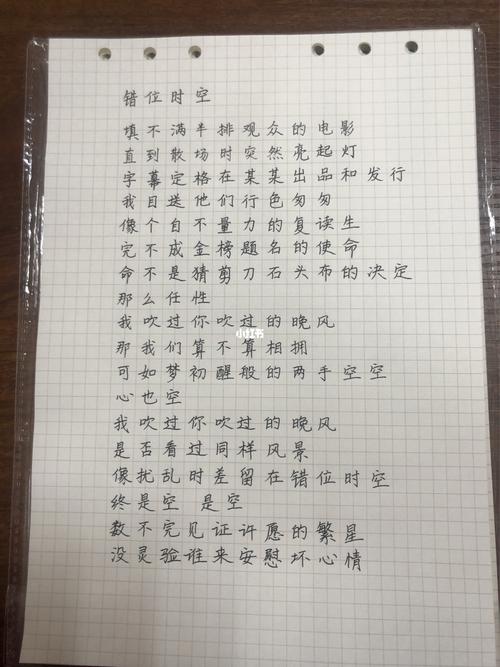 错位时空
填不满半排观众的电影
直到散场时突然亮起灯
字幕定格在某某出品和发行
我目送他们行色匆匆
像个自不量力的复读生
完不成金榜题名的使命
命不是猜剪刀石头布的决定
那么任性
我吹过你吹过的晚风
那我们算不算相拥
可如梦初醒般的两手空空
心也空
我吹过你吹过的晚风
是否看过同样风景
像扰乱时差留在错位时空
终是空 是空
数不完见证许愿的繁星
没灵验谁来安慰坏心情
小红书